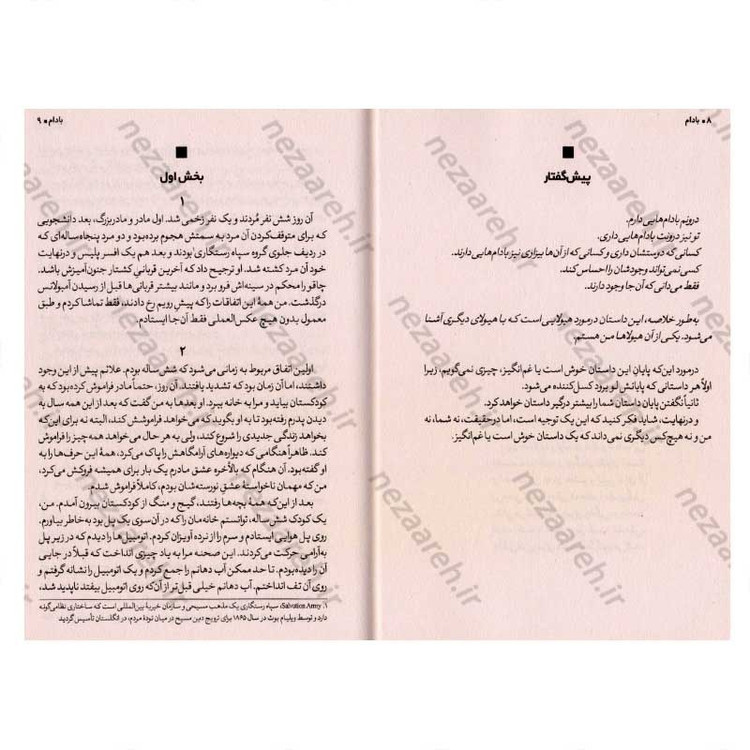 ۸ ▪ بادام
پیش‌گفتار
درونم بادام‌هایی دارم.
تو نیز درونت بادام‌هایی داری.
کسانی که دوستشان داری و کسانی که از آن‌ها بیزاری نیز بادام‌هایی دارند.
کسی نمی‌تواند وجودشان را احساس کند.
فقط می‌دانی که آن‌جا وجود دارند.
به‌طور خلاصه، این داستان درمورد هیولایی است که با هیولای دیگری آشنا
می‌شود. یکی از آن هیولاها من هستم.
درمورد این‌که پایان این داستان خوش است یا غم‌انگیز، چیزی نمی‌گویم، زیرا
اولاً هر داستانی که پایانش لو برود کسل‌کننده می‌شود.
ثانیاً نگفتن پایان داستان شما را بیشتر درگیر داستان خواهد کرد.
و درنهایت، شاید فکر کنید که این یک توجیه است، اما درحقیقت، نه شما، نه
من و نه هیچ‌کس دیگری نمی‌داند که یک داستان خوش است یا غم‌انگیز.
بادام ▪ ۹
بخش اول
۱
آن روز شش نفر مُردند و یک نفر زخمی شد. اول مادر و مادربزرگ، بعد دانشجویی
که برای متوقف‌کردن آن مرد به سمتش هجوم برده‌بود و دو مرد پنجاه‌ساله‌ای که
در ردیف جلوی گروه سپاه رستگاری۱ بودند و بعد هم یک افسر پلیس و درنهایت
خود آن مرد کشته شد. او ترجیح داد که آخرین قربانیِ کشتار جنون‌آمیزش باشد.
چاقو را محکم در سینه‌اش فرو برد و مانند بیشتر قربانی‌ها قبل از رسیدن آمبولانس
درگذشت. من همهٔ این اتفاقات را که پیش رویم رخ دادند، فقط تماشا کردم و طبق
معمول بدون هیچ عکس‌العملی فقط آن‌جا ایستادم.
۲
اولین اتفاق مربوط به زمانی می‌شود که شش‌ساله بودم. علائم پیش از این وجود
داشتند، اما آن زمان بود که تشدید یافتند. آن روز، حتماً مادر فراموش کرده‌بود که به
کودکستان بیاید و مرا به خانه ببرد. او بعدها به من گفت که بعد از این همه سال به
دیدن پدرم رفته‌بود تا به او بگوید که می‌خواهد فراموشش کند، البته نه برای این‌که
بخواهد زندگی جدیدی را شروع کند، ولی به هر حال می‌خواهد همه‌چیز را فراموش
کند. ظاهراً هنگامی که دیواره‌های آرامگاهش را پاک می‌کرد، همهٔ این حرف‌ها را به
او گفته‌بود. آن هنگام که بالأخره عشق مادرم یک بار برای همیشه فروکش می‌کرد،
من که مهمان ناخواستهٔ عشق نورسته‌شان بودم، کاملاً فراموش شدم.
بعد از این‌که همهٔ بچه‌ها رفتند، گیج و منگ از کودکستان بیرون آمدم. من،
یک کودک شش‌ساله، توانستم خانه‌مان را که در آن‌سوی یک پل بود به‌خاطر بیاورم.
روی پل هوایی ایستادم و سرم را از نرده آویزان کردم. اتومبیل‌ها را دیدم که در زیر پل
به‌آرامی حرکت می‌کردند. این صحنه مرا به یاد چیزی انداخت که قبلاً در جایی
آن را دیده‌بودم. تا حد ممکن آب دهانم را جمع کردم و یک اتومبیل را نشانه گرفتم و
روی آن تف انداختم. آب دهانم خیلی قبل‌تر از آن‌که روی اتومبیل بیفتد ناپدید شد،
۱. Salvation Army؛ سپاه رستگاری یک مذهب مسیحی و سازمان خیریهٔ بین‌المللی است که ساختاری نظامی‌گونه
دارد و توسط ویلیام بوث در سال ۱۸۶۵ برای ترویج دین مسیح در میان تودهٔ مردم، در انگلستان تأسیس گردید
nezaareh.ir
nezaareh.ir
nezaareh.ir
nezaareh.ir
nezaareh.ir
nezaareh.ir